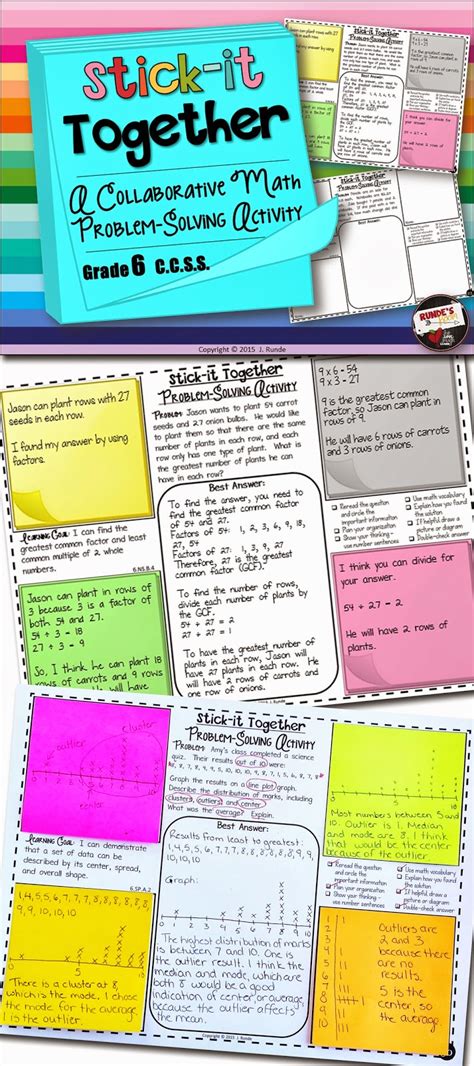 Stick-it
Together
A Collaborative Math
Problem-Solving Activity
Grade 6 C.C.S.S.
RUNDE'S
Room
Copyright © 2015 J. Runde
Jason can plant rows with 27
seeds in each row.
I found my answer by using
factors.
Stick-it Together
Problem-Solving Activity
Problem: Jason wants to plant 54 carrot
seeds and 27 onion bulbs. He would like
to plant them so that there are the same
number of plants in each row, and each
row only has one type of plant. What is
the greatest number of plants he can
have in each row?
9 x 6 = 54
9 x 3 = 27
9 is the greatest common
factor, so Jason can plant in
rows of 9.
He will have 6 rows of carrots
and 3 rows of onions.
Learning Goal: I can find the
greatest common factor and least
common multiple of 2, whole
numbers.
6.NS.B.4
Best Answer:
To find the answer, you need to
find the greatest common factor
of 54 and 27.
Factors of 54: 1, 2, 3, 6, 9, 18,
27, 54
Factors of 27: 1, 3, 9, 27
Therefore, 27 is the greatest
common factor (GCF).
To find the number of rows,
divide each number of plants by
the GCF.
54 ÷ 27 = 2
27 ÷ 27 = 1
To have the greatest number of
plants in each row, Jason will
have 27 plants in each row. He
will have two rows of carrots and
one row of onions.
Reread the question
and circle the
important information
Plan your organization
Show your thinking -
use number sentences
Use math vocabulary
Explain how you
found the solution
If helpful, draw a
picture or diagram
Double-check answer
Jason can plant in rows of
3 because 3 is a factor of
both 54 and 27.
54 ÷ 3 = 18
27 ÷ 3 = 9
So, I think he can plant 18
rows of carrots and 9 rows
I think you can divide for
your answer.
54 ÷ 27 = 2
He will have 2 rows of
plants.
Copyright © 2015 J. Runde
outlier
cluster
Stick-it Together
Problem-Solving Activity
Problem: Amy's class completed a science
quiz. Their results out of 10 were:
Graph the results on a line plot graph.
Describe the distribution of marks, including
clusters, outliers, and center.
What was the average? Explain.
Most numbers between 5 and
10. Outlier is 1. Median
and mode are 8. I think
that would be the center
because of the outlier.
Learning Goal: I can demonstrate
that a set of data can be
described by its center, spread,
and overall shape.
6.SP.A.2
Best Answer:
Results from least to greatest:
Graph:
The highest distribution of marks
is between 7 and 10. One is
the outlier result. I think the
median and mode, which are
both 8 would be a good
indication of center, or average,
because the outlier affects
the mean.
Reread the question
and circle the
important information
Plan your organization
Show your thinking -
use number sentences
Use math vocabulary
Explain how you
found the solution
If helpful, draw a
picture or diagram
Double-check answer
There is a cluster at 8,
which is the mode. I chose
the mode for the average.
1 is the outlier.
Outliers are
2 and 3
because there
are no
results.
5 is the
center, so
average.
Copyright © 2015 J. Runde